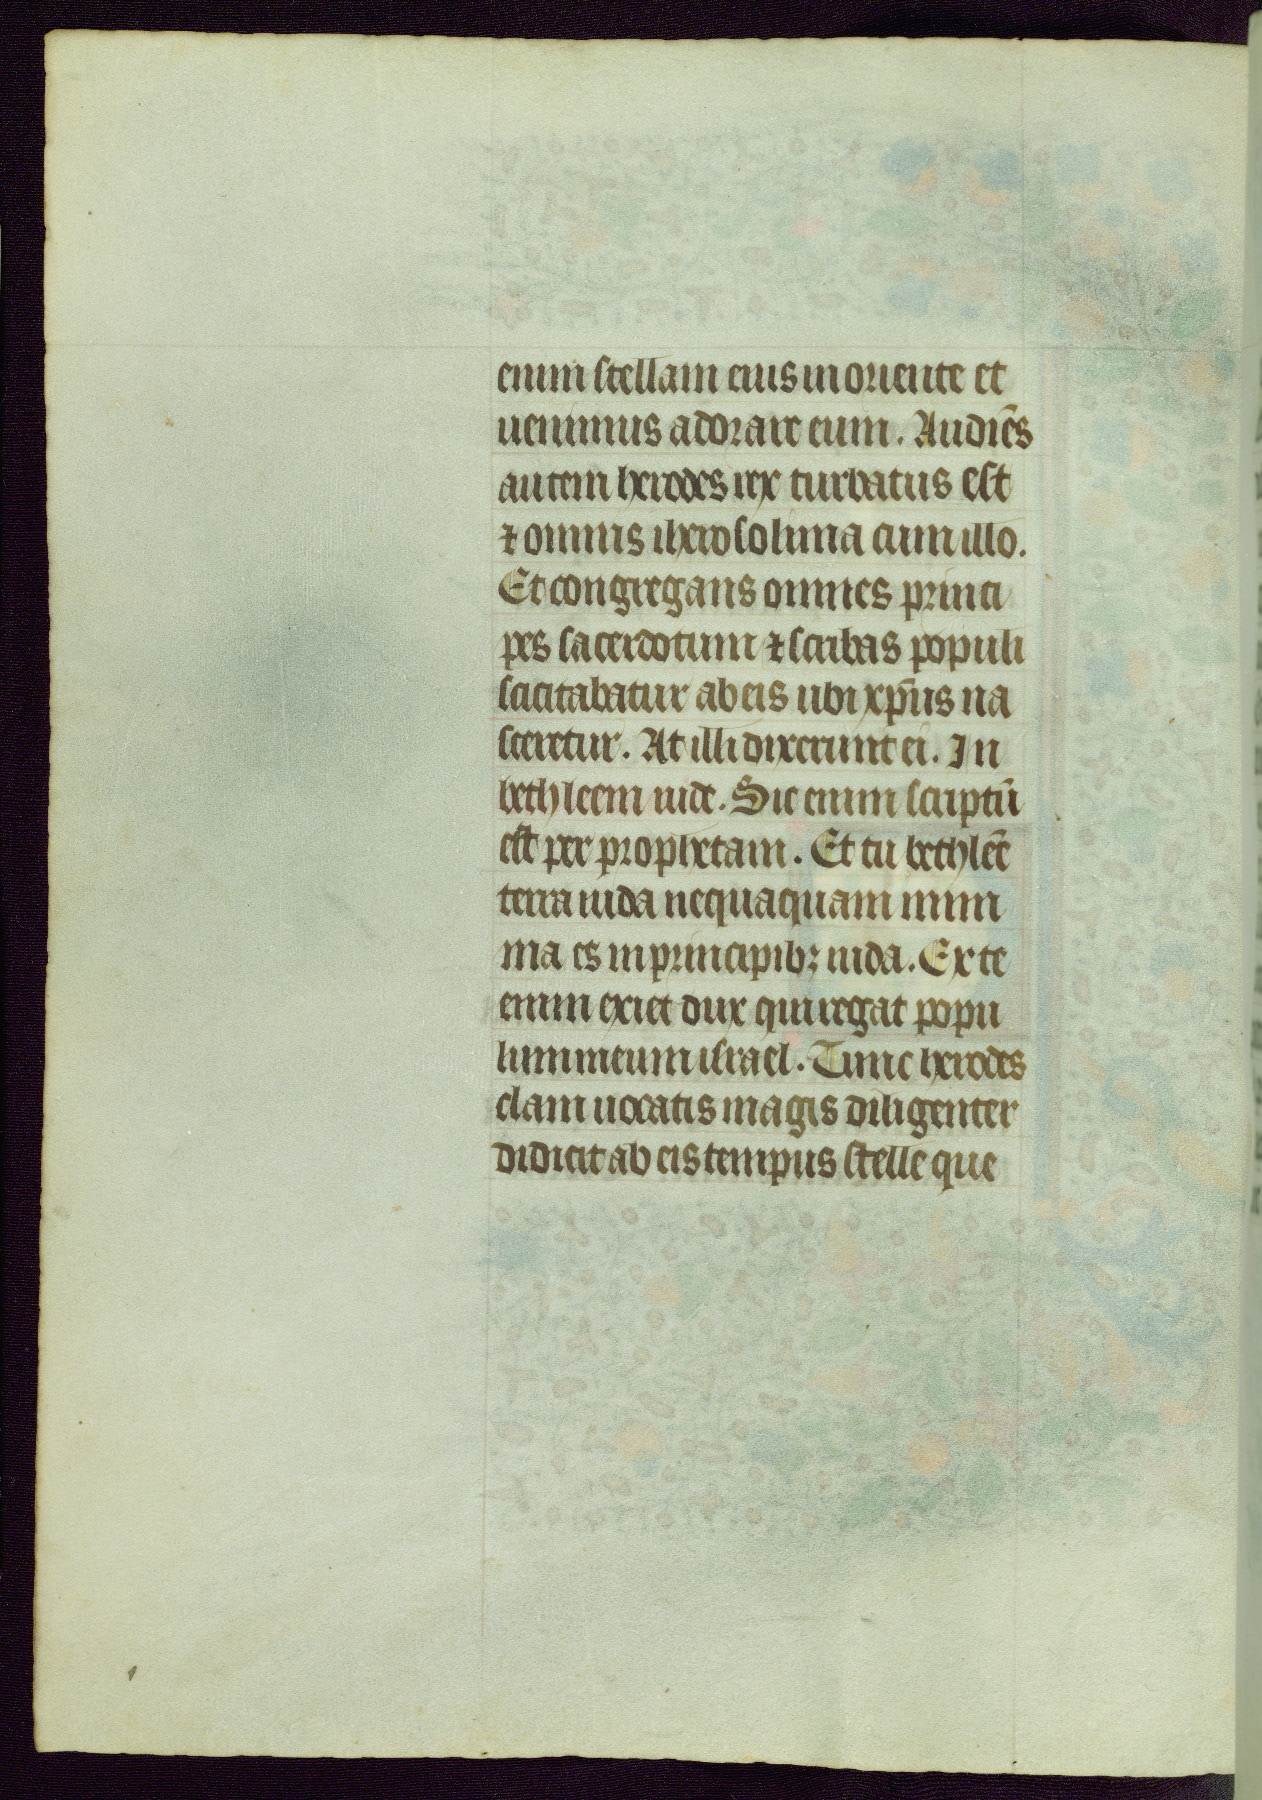 enim stellam eius in oriente et
uenimus adorare eum. Audiēs
autem herodes rex turbatus est
⁊ omnis iherosolima cum illo.
Et congregans omnes princi
pes sacerdotum ⁊ scribas populi
scicitabatur ab eis ubi xp̄us na
sceretur. At illi dixerunt ei. In
bethleem iude. Sic enim scriptū
est per prophetam. Et tu bethleē
terra iuda nequaquam mini
ma es in principibꝫ iuda. Ex te
enim exiet dux qui regat popu
lum meum israel. Tunc herodes
clam uocatis magis diligenter
didicit ab eis tempus stelle que